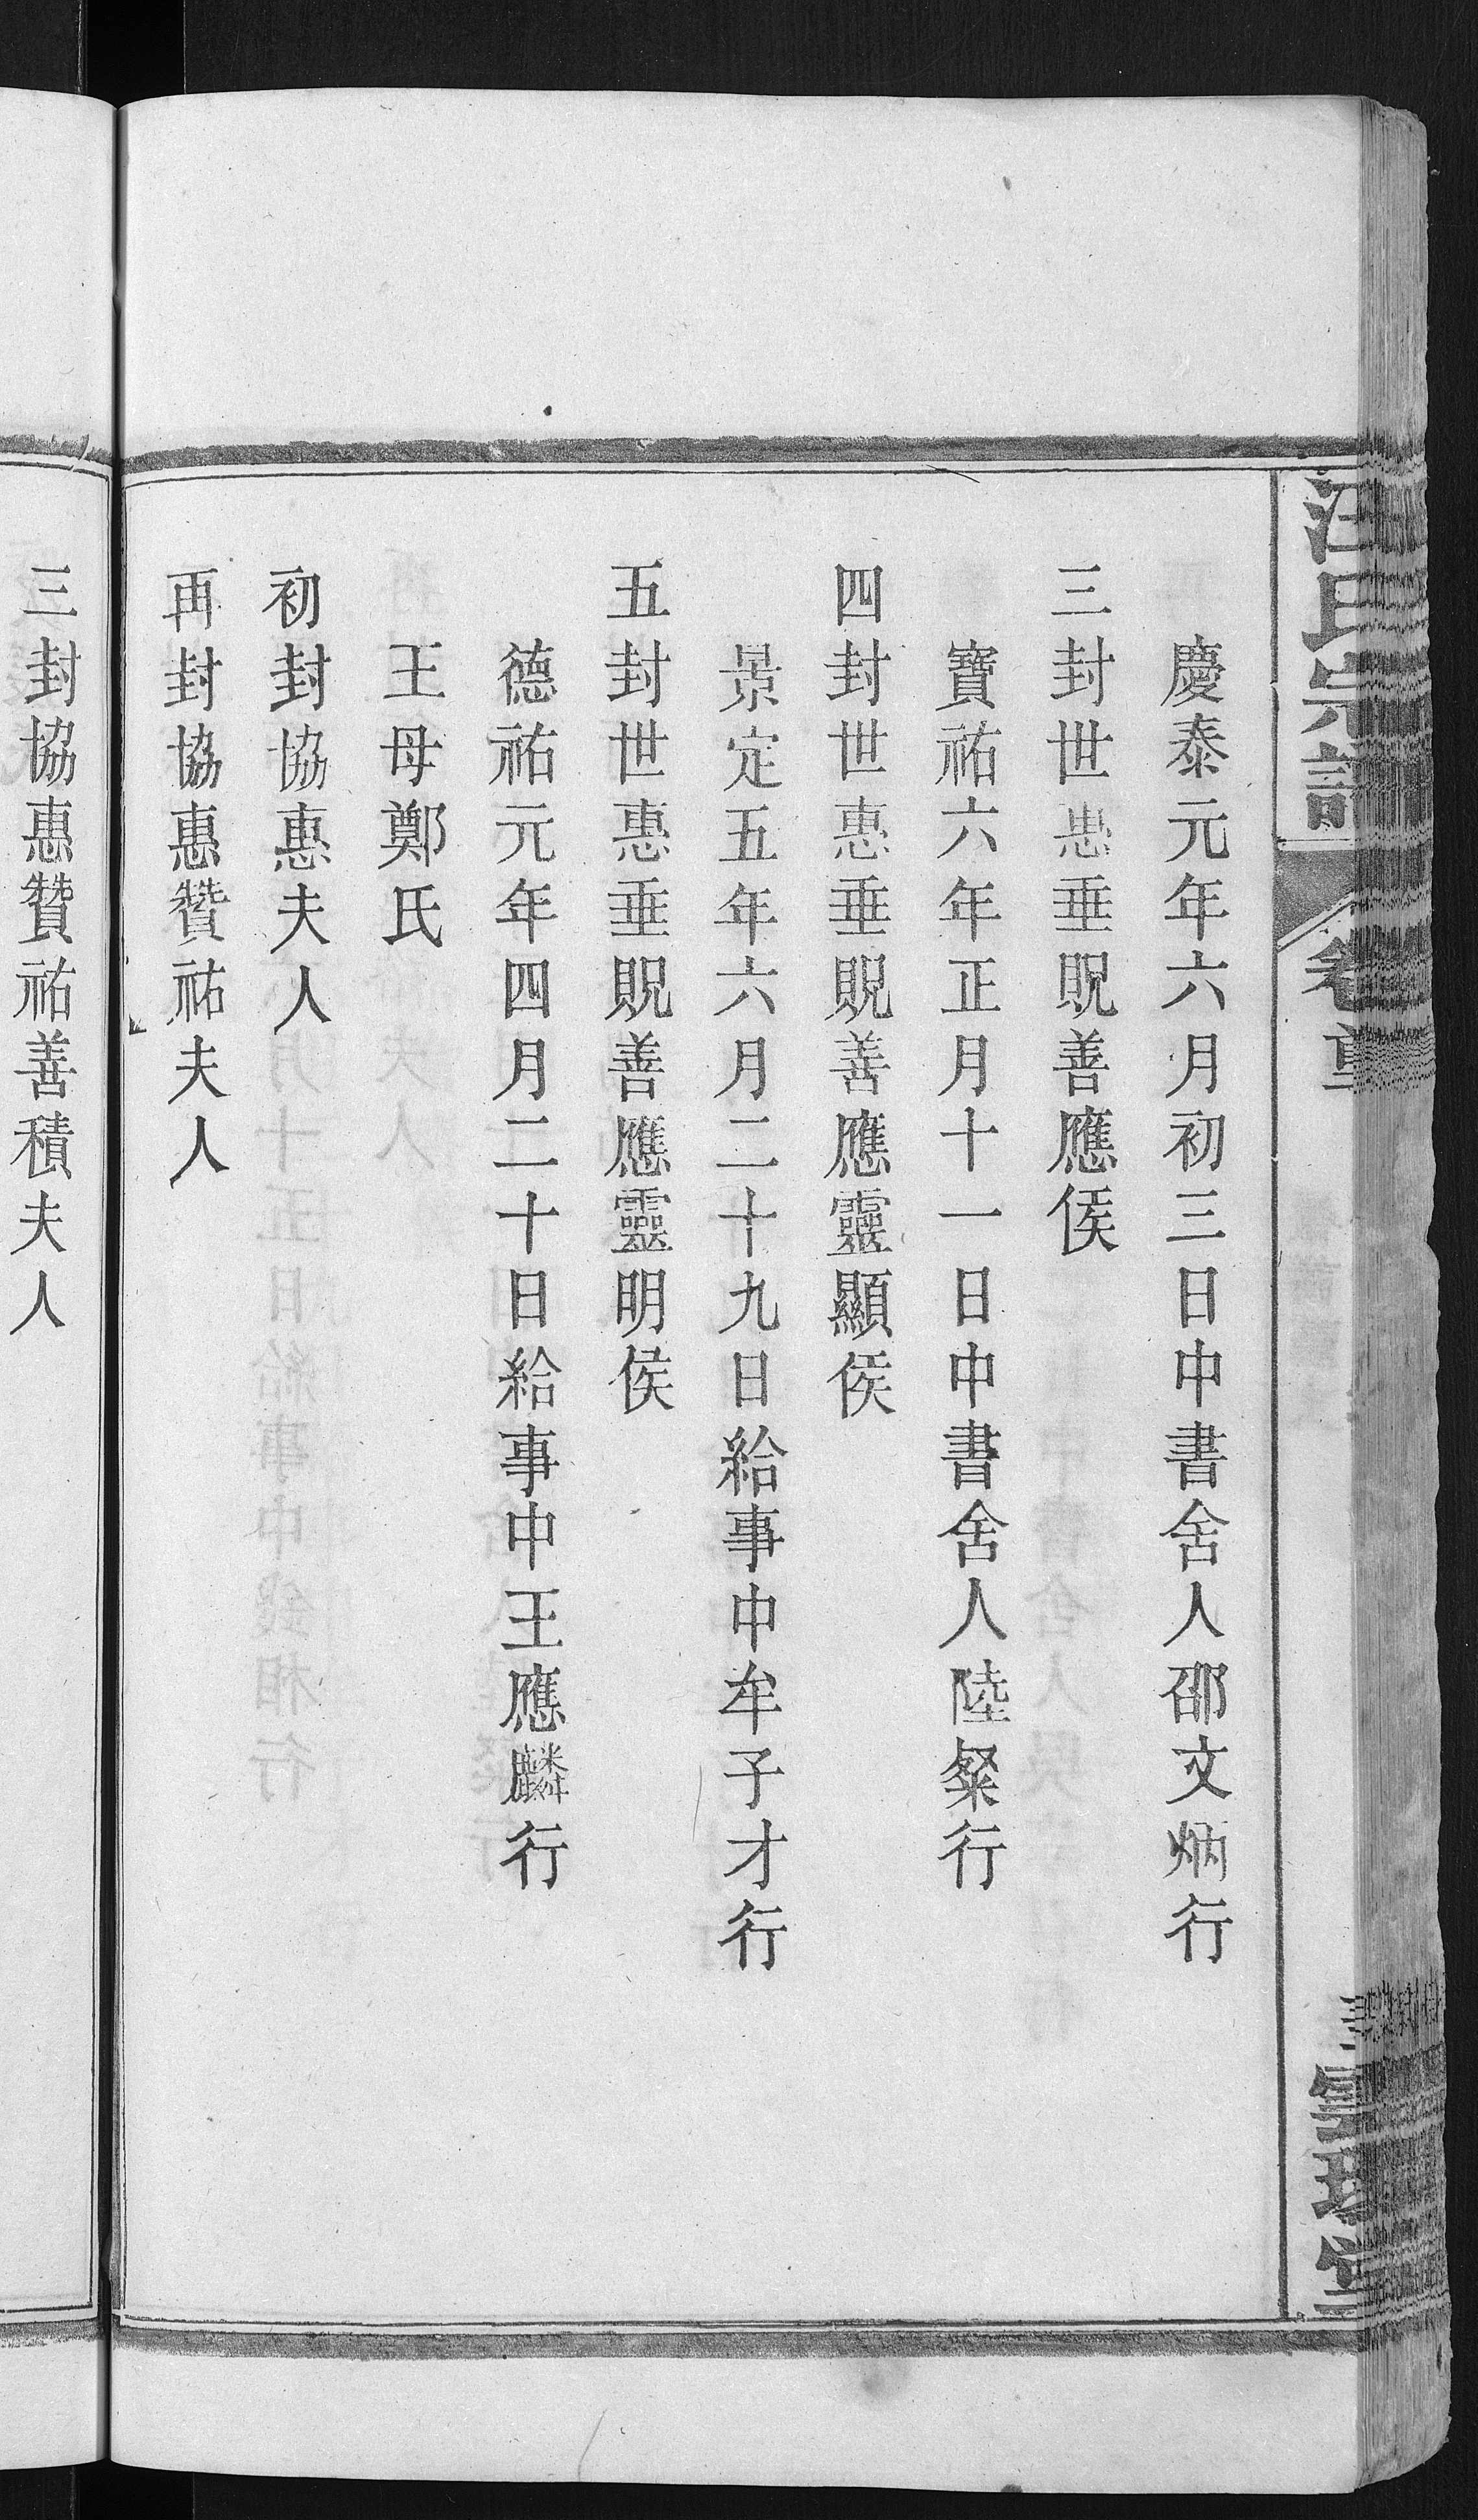 汪氏宗譜
慶泰元年六月初三日中書舍人邵文炳行
三封世惠垂貺善應侯
寶祐六年正月十一日中書舍人陸粲行
四封世惠垂貺善應靈顯侯
景定五年六月二十九日給事中牟子才行
五封世惠垂貺善應靈明侯
德祐元年四月二十日給事中王應麟行
王母鄭氏
初封協惠夫人
再封協惠贊祐夫人
三封協惠贊祐善積夫人